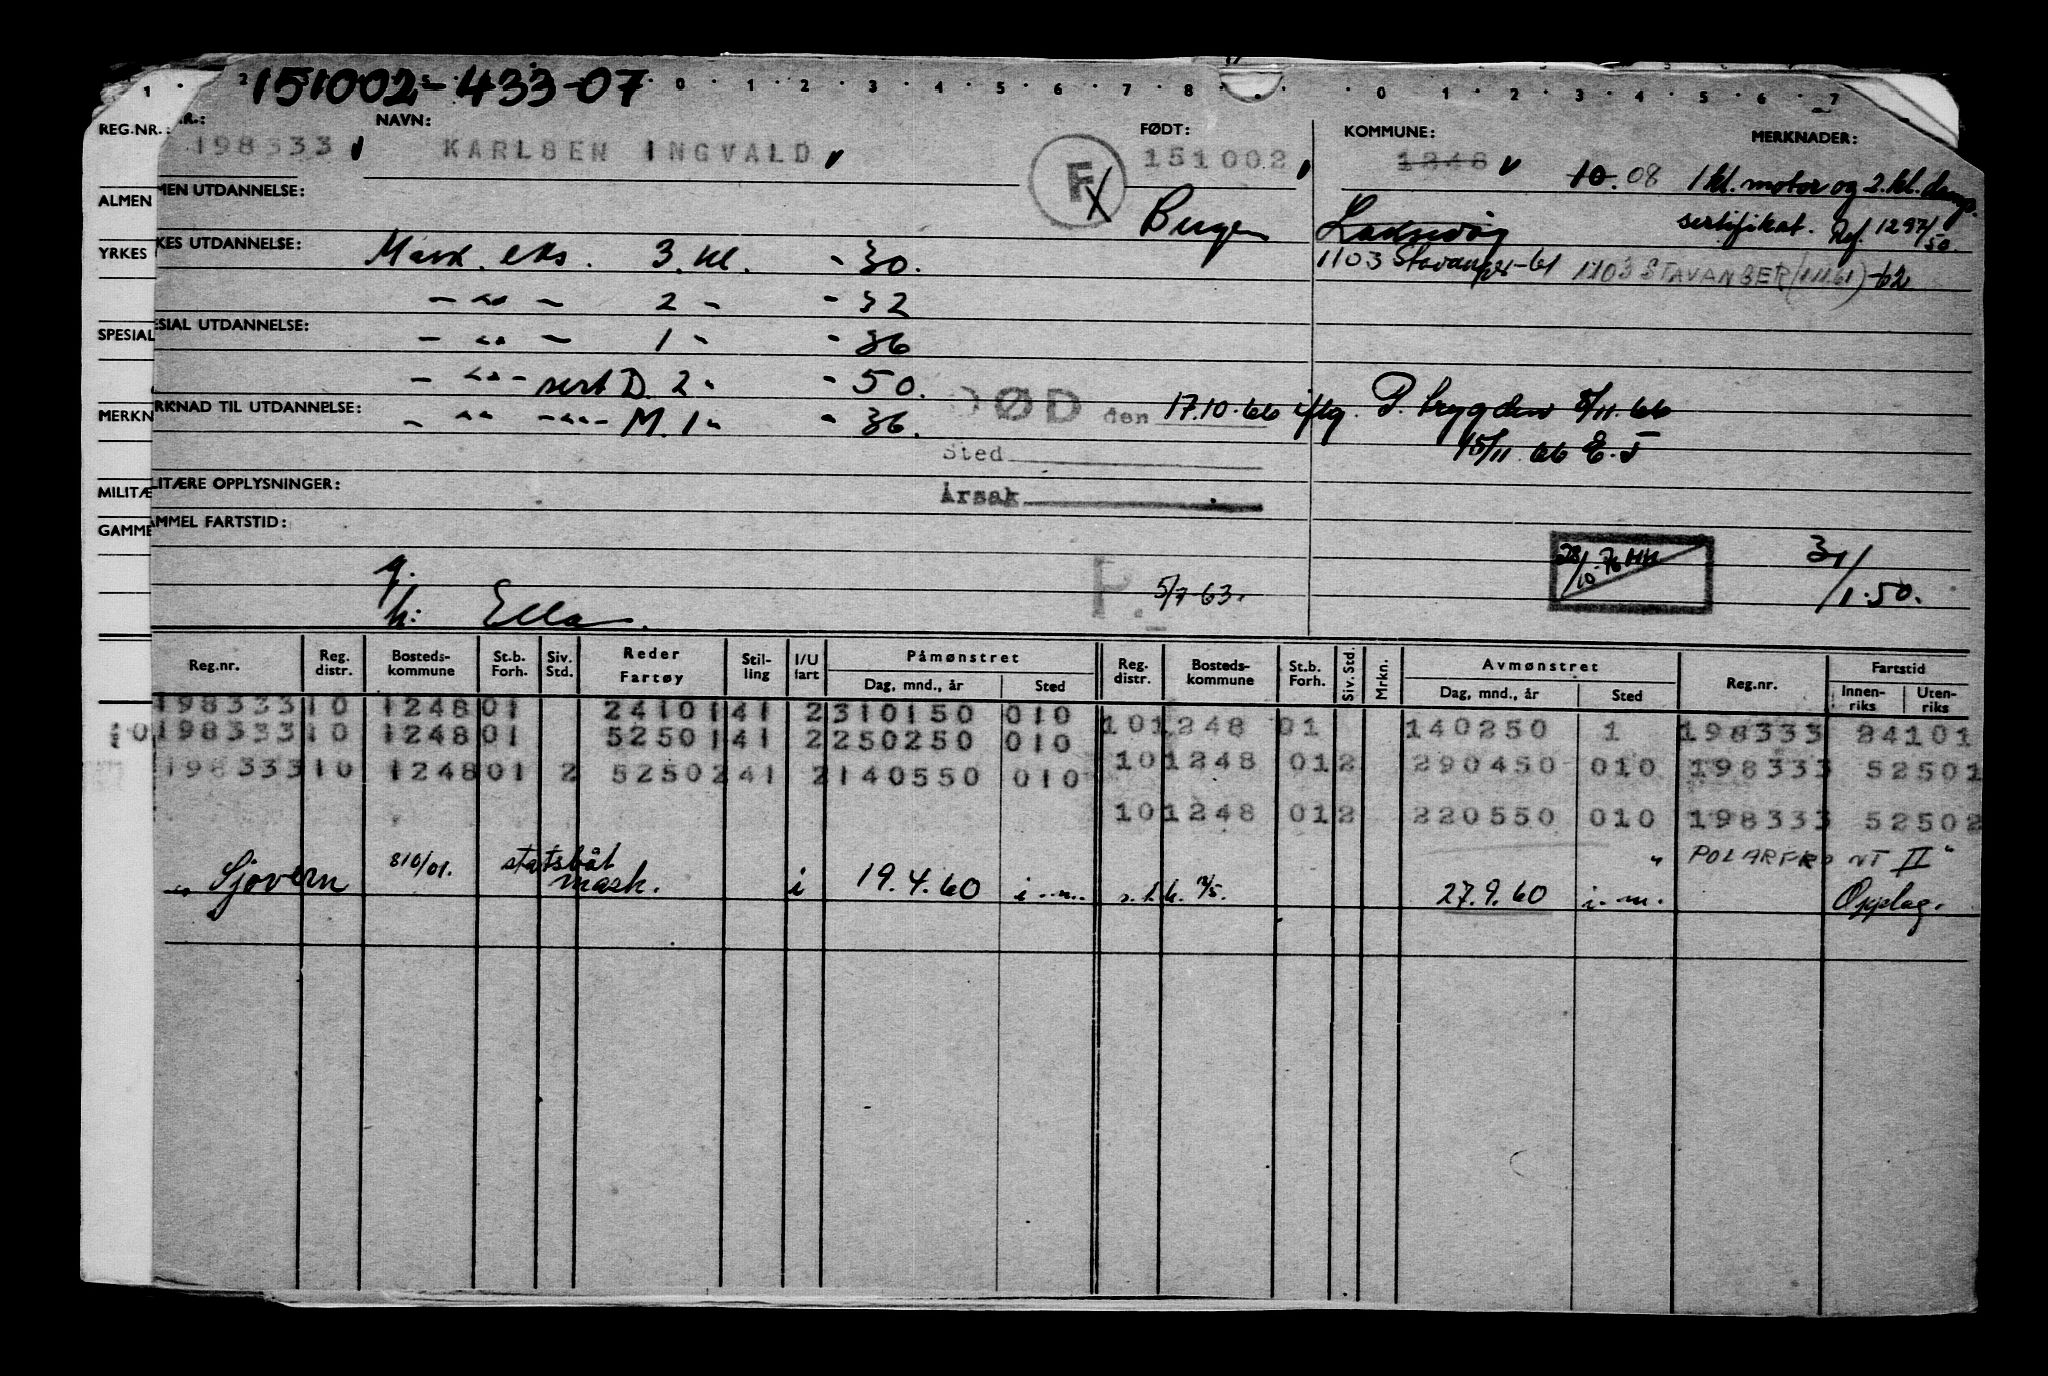 151002-433-07
REG.NR.: NAVN: FØDT: KOMMUNE: MERKNADER:
198333 KARLSEN INGVALD F 151002 1248 10.08 1 kl. motor og 2. kl. damp.
ALMEN MEN UTDANNELSE: Bergen Laksevåg sertifikat. Ref. 1297/50.
YRKES KES UTDANNELSE: Mask. eks. 3. kl. -30. 1103 Stavanger-61 1103 STAVANGER (1/11.61)-62
- " - 2 - -32
SPESIAL ESIAL UTDANNELSE: - " - 1 - -36
- " - sert D. 2 - -50.
MERKN RKNAD TIL UTDANNELSE: - " - - " - M. 1 - -36. DØD den 17.10.66 iflg. P. trygden 8/11.66
Sted 15/11 66 E.T
MILITÆ LITÆRE OPPLYSNINGER: Årsak
GAMME AMMEL FARTSTID:
28/10-76 HH 31/1.50.
g.
h: Ella. P. 5/7 63.
Reg.nr. Reg. distr. Bosteds-kommune St.b. Forh. Siv. Std. Reder Fartøy Stil-ling I/U fart Påmønstret Dag, mnd., år Sted Reg. distr. Bosteds-kommune St.b. Forh. Siv. Std. Mrkn. Avmønstret Dag, mnd., år Sted Reg.nr. Fartstid Innen-riks Uten-riks
198333 10 1248 01 24101 41 2 310150 010 10 1248 01 140250 1 198333 24101
198333 10 1248 01 52501 41 2 250250 010 10 1248 01 2 290450 010 198333 52501
198333 10 1248 01 2 52502 41 2 140550 010 10 1248 01 2 220550 010 198333 52502
"Sjøvern 810/01. statsbåt mask. i 19.4.60 i..m.. 27.9.60 i.m. "POLARFRONT II" Opplag.